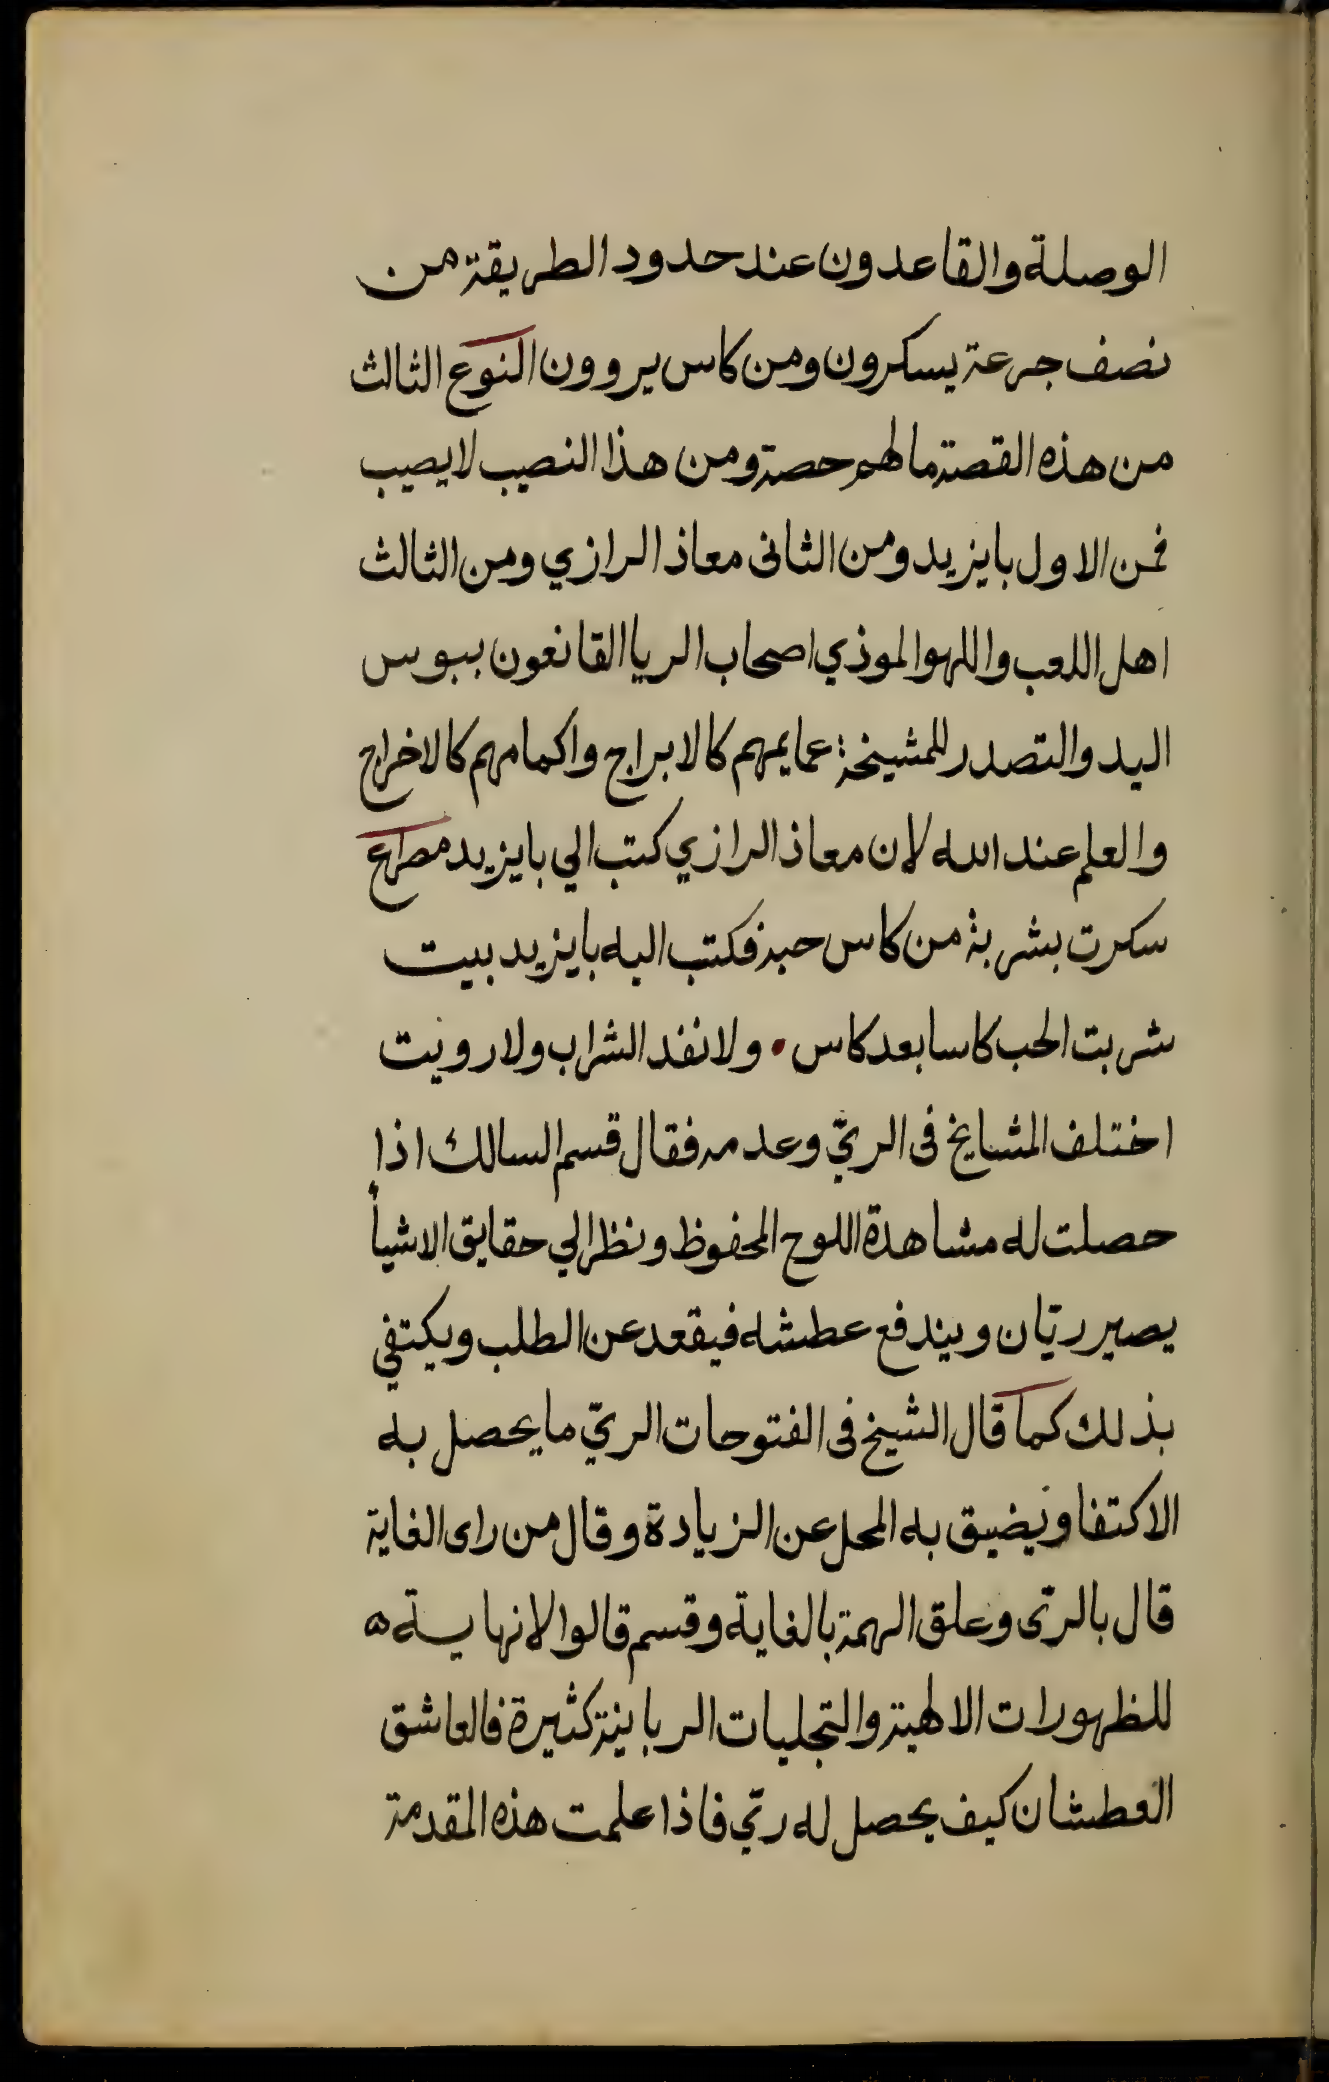 الوصلة والقاعدون عند حدود الطريقة من
نصف جرعة يسكرون ومن كاس يروون النوع الثالث
من هذه القصة ما لهم حصة ومن هذا النصيب لا يصيب
فمن الاول بايزيد ومن الثانى معاذ الرازي ومن الثالث
اهل اللعب واللهو الموذي اصحاب الريا القانعون ببوس
اليد والتصدر للمشيخة عمايمهم كالابراج واكمامهم كالاخراج
والعلم عند الله لان معاذ الرازي كتب الي بايزيد مصراع
سكرت بشربة من كاس حبه فكتب اليه بايزيد بيت
شربت الحب كاسا بعد كاس • ولا نفد الشراب ولا رويت
اختلف المشايخ فى الريّ وعدمه فقال قسم السالك اذا
حصلت له مشاهدة اللوح المحفوظ ونظر الي حقايق الاشيأ
يصير ريّان ويندفع عطشه فيقعد عن الطلب ويكتفي
بذلك كما قال الشيخ فى الفتوحات الريّ ما يحصل به
الاكتفا ويضيق به المحل عن الزيادة وقال من راى الغاية
قال بالرّى وعلق الهمة بالغاية وقسم قالوا لا نهايـــة ه
للظهورات الالهية والتجليات الربانية كثيرة فالعاشق
العطشان كيف يحصل له ريّ فاذا علمت هذه المقدمة